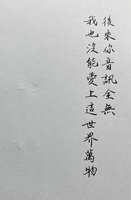 後來你音訊全無
我也沒能愛上這世界萬物